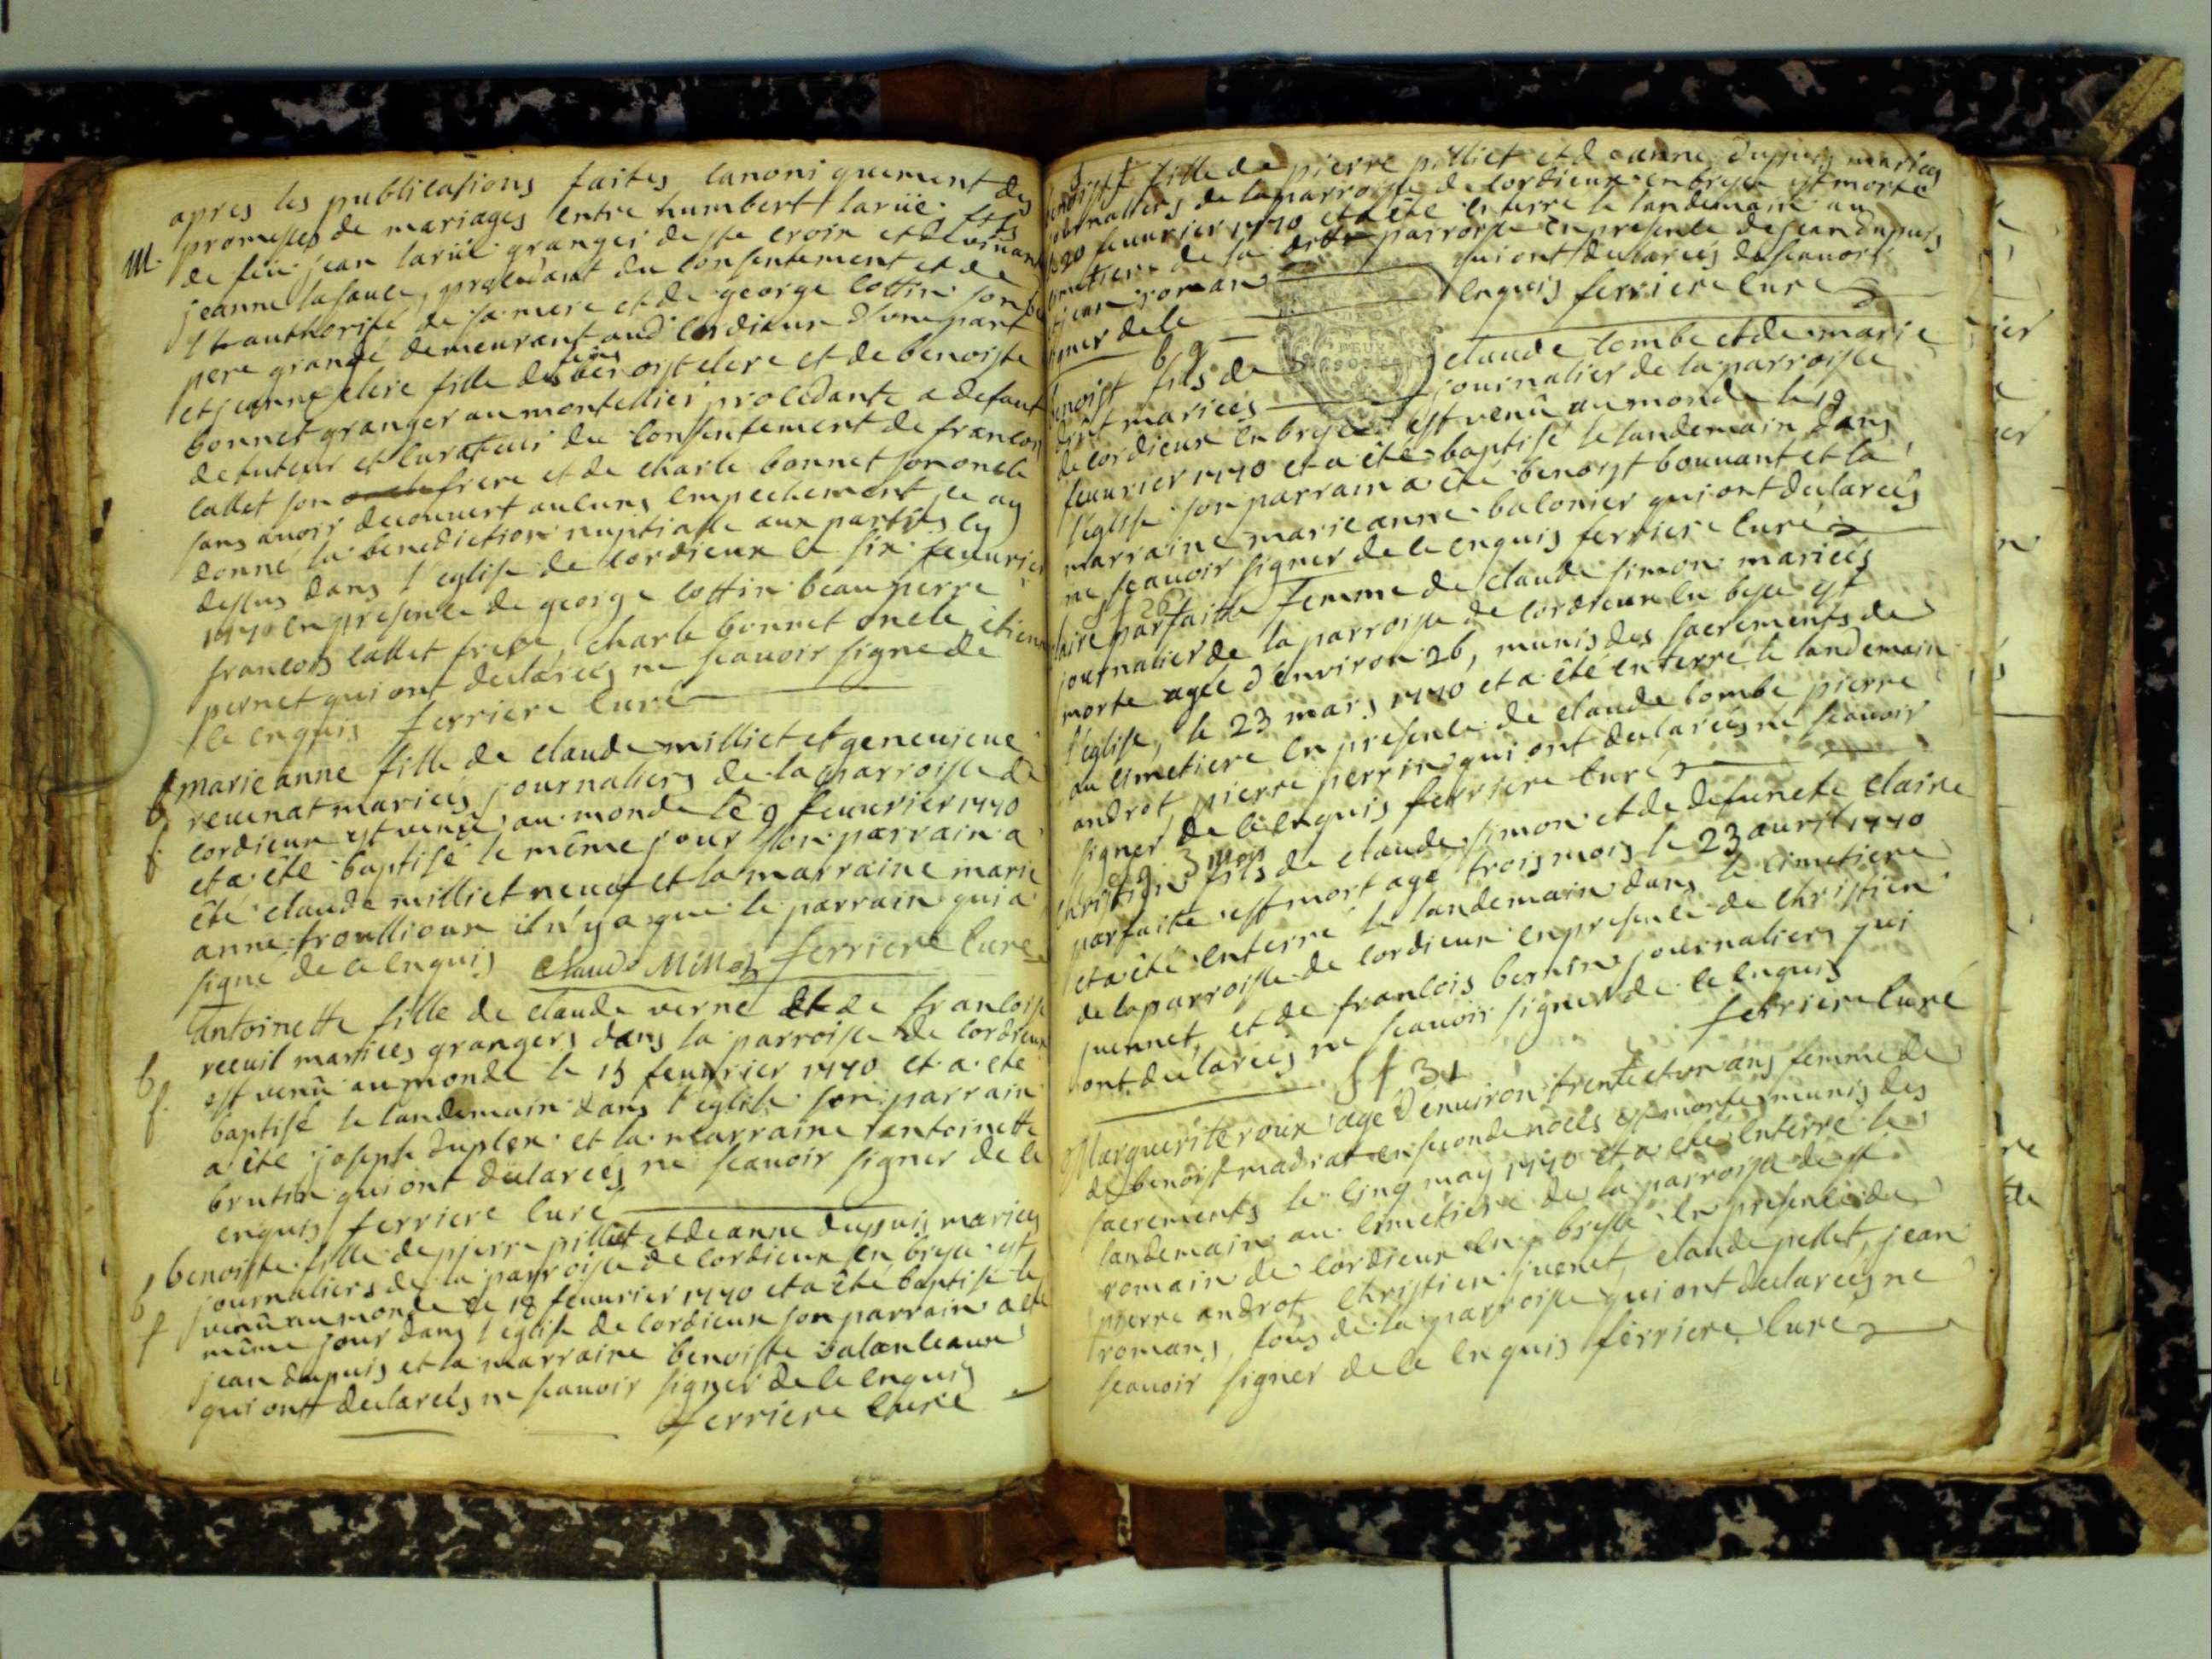 apres les publications faites canoniquement des
M. promesses de mariages entre humbert larüe fils
de feüe jean larüe granger de ste croix et de vivante
jeanne lafaule, procedant du consentement et de
l'authorité de sa mere et de george cottin son
pere grangé demeurant audit cordieux d'une part
et jeanne clere fille des feus benoist clere et de benoiste
bonnet granger au montellier procedante a defaut
de tuteur et curateur du consentement de francois
callet son frere et de charle bonnet son oncle
sans avoir decouvert aucuns empechement je ay
donné la benediction nuptialle aux parties cy
dessus dans l'eglise de cordieux le six feuurier
1770 en presence de george cottin beaupere
francois callet frere, charle bonnet oncle, etienne
pernet qui ont declareés ne scauoir signé de
ce enquis ferriere curé
marie anne fille de claude milliet et geneuieue
b reuenat marieés journaliers de la parroisse de
f. cordieux est venüe au monde le 9 feuurier 1770
et a été baptisé le même jour son parrain a
été claude milliet neueu et la marraine marie
anne troullioux il n'y a que le parrain qui a
signé de ce enquis claude Milliet ferriere curé
antoinette fille de claude verne et de francoise
b receuil marieés grangers dans la parroisse de cordieux
f. est venû au monde le 15 feuurier 1770 et a été
baptisé le landemain dans l'eglise son parrain
a été joseph duplex et la marraine antoinette
brutin qui ont declareés ne scauoir signer de ce
enquis ferriere curé
benoiste fille de pierre pilliet et de anne dupuis marieés
b journaliers de la parroisse de cordieux en bresse est
f venû au monde le 18 feuurier 1770 et a été baptisé le
même jour dans l'eglise de cordieux son parrain a été
jean dupuis et la marraine benoiste
qui ont declareés ne scauoir signer de ce enquis
ferriere curé
benoiste fille de pierre pilliet et d'anne dupuis marieés
journaliers de la parroisse de cordieux en bresse est morte
le 20 feuurier 1770 et a été enterré le landemain au
cimetiere de la ditte parroisse en presence de jean dupuis
et jean romans qui ont declareés de scauoir
signer de ce enquis ferriere curé
b g
benoist fils de claude combe et de marie
marieés journalier de la parroisse
de cordieux en bresse est venû au monde le 19
feuurier 1770 et a été baptisé le landemain dans
l'eglise son parrain a été benoist bouuant et la
marraine marie anne balonier qui ont declareés
ne scauoir signer de ce enquis ferriere curé
s f 26
claire parfaitte femme de claude simon marieés
journalier de la parroisse de cordieux en besse est
morte ageé d'environ 26, munis des sacrements de
l'eglise, le 23 mars 1770 et a été enterré le landemain
au cimetiere en presence de claude combe pierre
androt, pierre perrin qui ont declareés ne scauoir
signer de ce enquis ferriere curé
s g 3 mois
christien fils de claude simon et de defuncte claire
parfaite est mort agé trois mois le 23 auril 1770
et a été enterré le landemain dans le cimetiere
de la parroisse de cordieux en presence de christien
juennet, et de francois bernin journaliers qui
ont declareés ne scauoir signer de ce enquis
ferriere curé
s f 31
Marguerite roux agé d'enuiron trente et un ans femme de
de benoist madrat en seconde noces est morte munis des
sacrements le cinq may 1770 et a été enterré le
landemain au cimetiere de la parroisse de st
romain de cordieux en bresse en presence de
pierre androt christien juenet, claude pellet, jean
romans, tous de la parroisse qui ont declareés ne
scauoir signer de ce enquis ferriere curé